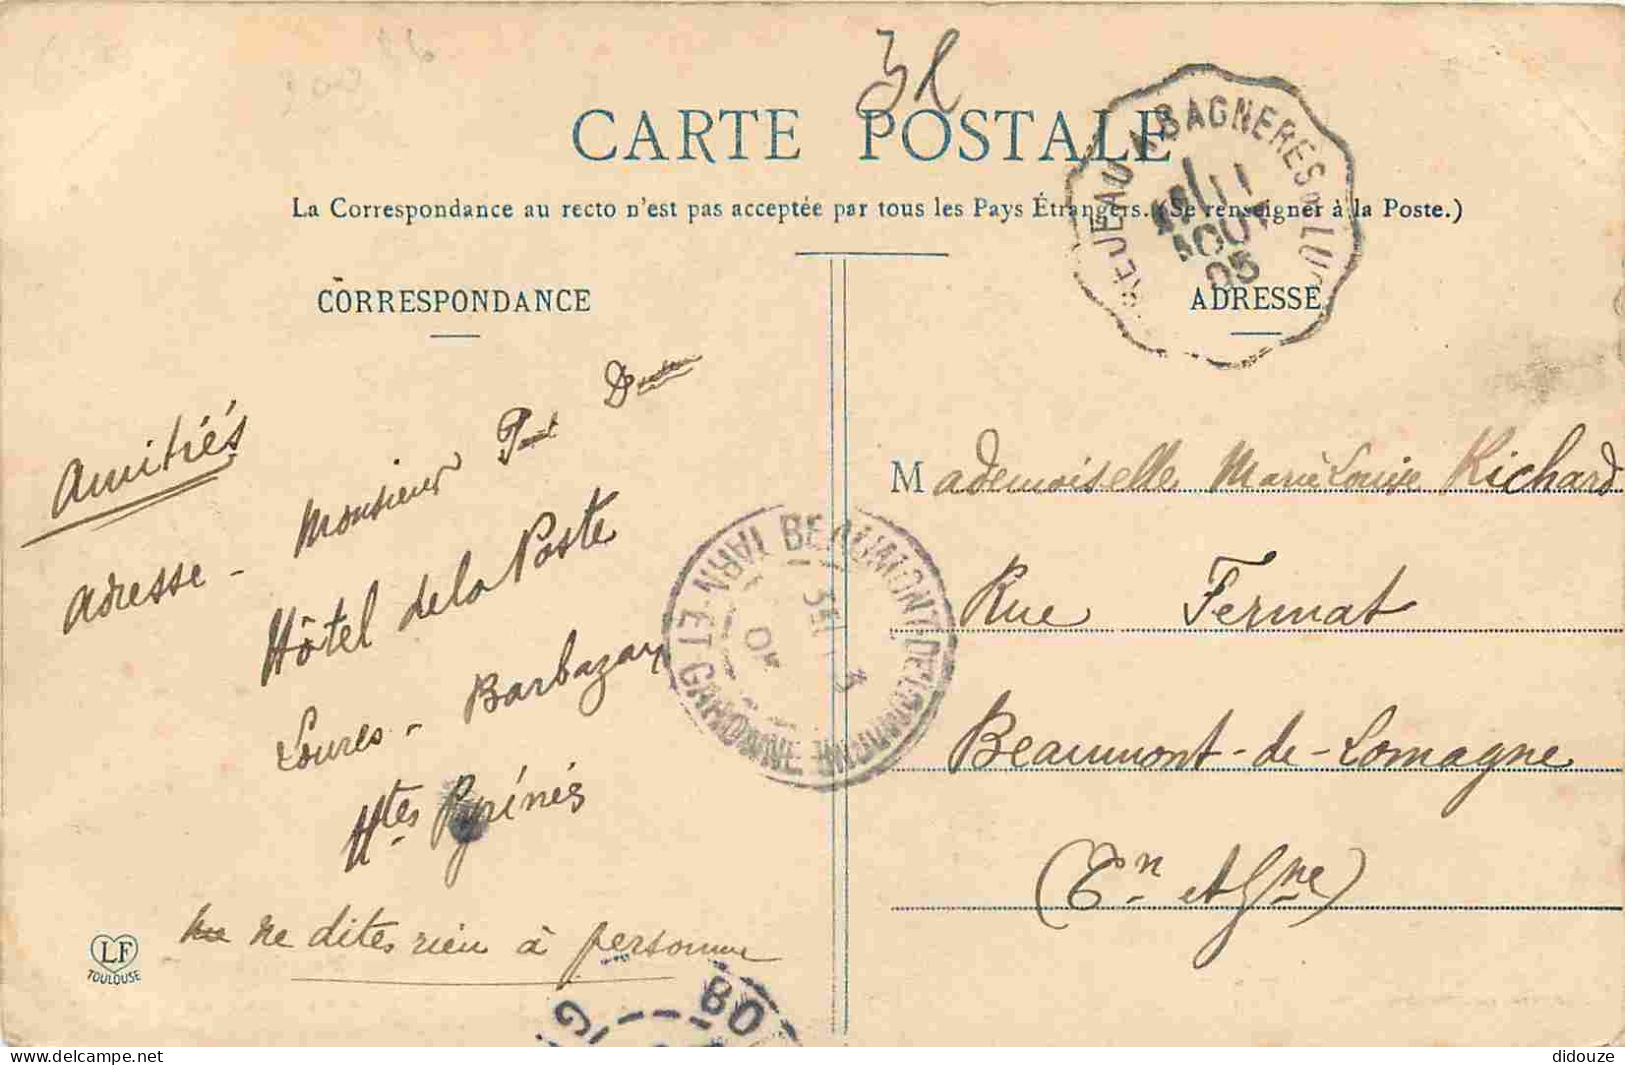 CARTE POSTALE
La Correspondance au recto n'est pas acceptée par tous les Pays Étrangers. (Se renseigner à la Poste.)
CORRESPONDANCE
Amitiés
Adresse - Monsieur
Hôtel de la Poste
Loures - Barbazan
Htes Pyrénés
ne dites rien à personne
LF
TOULOUSE
ADRESSE
Mademoiselle Marie Louise Richard
Rue Fermat
Beaumont-de-Lomagne
(Tn et Gne)
BAGNERES
11
AOUT
05
BEAUMONT DE LOMAGNE
TARN-ET-GARONNE
BO
www.delcampe.net
didouze